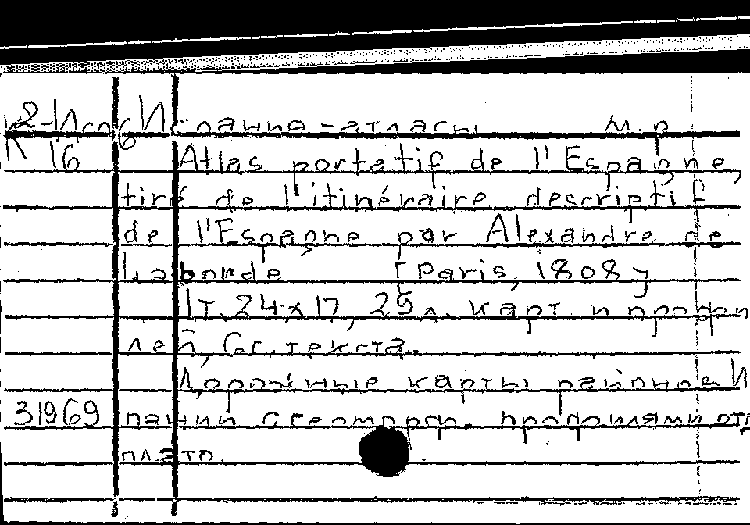 2-Исп6 Испания-атласы М.р.
К 16 Atlas portatif de l'Espagne,
tiré de l'itinéraire descriptif
de l'Espagne par Alexandre de
Laborde [Paris, 1808]
1т. 24x17, 29л. карт и профи
лей, 6с. текста.
Дорожные карты районов И
31969 пании с геогр. профилями от
плато.